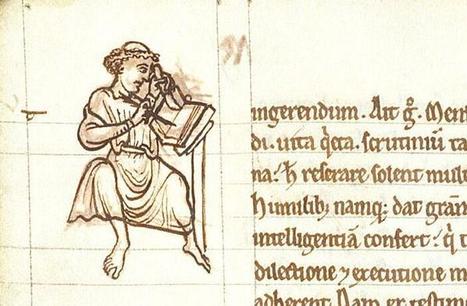 ingerendum. Ait g̅. Mem
di. uita q̇cta. scrutiniū ta
na: ħ reserare solent mult
humilib; namq; dat gram̄
intelligentiā confert: q̇ t
dilectione ⁊ executione m
adherent. Nam et testim